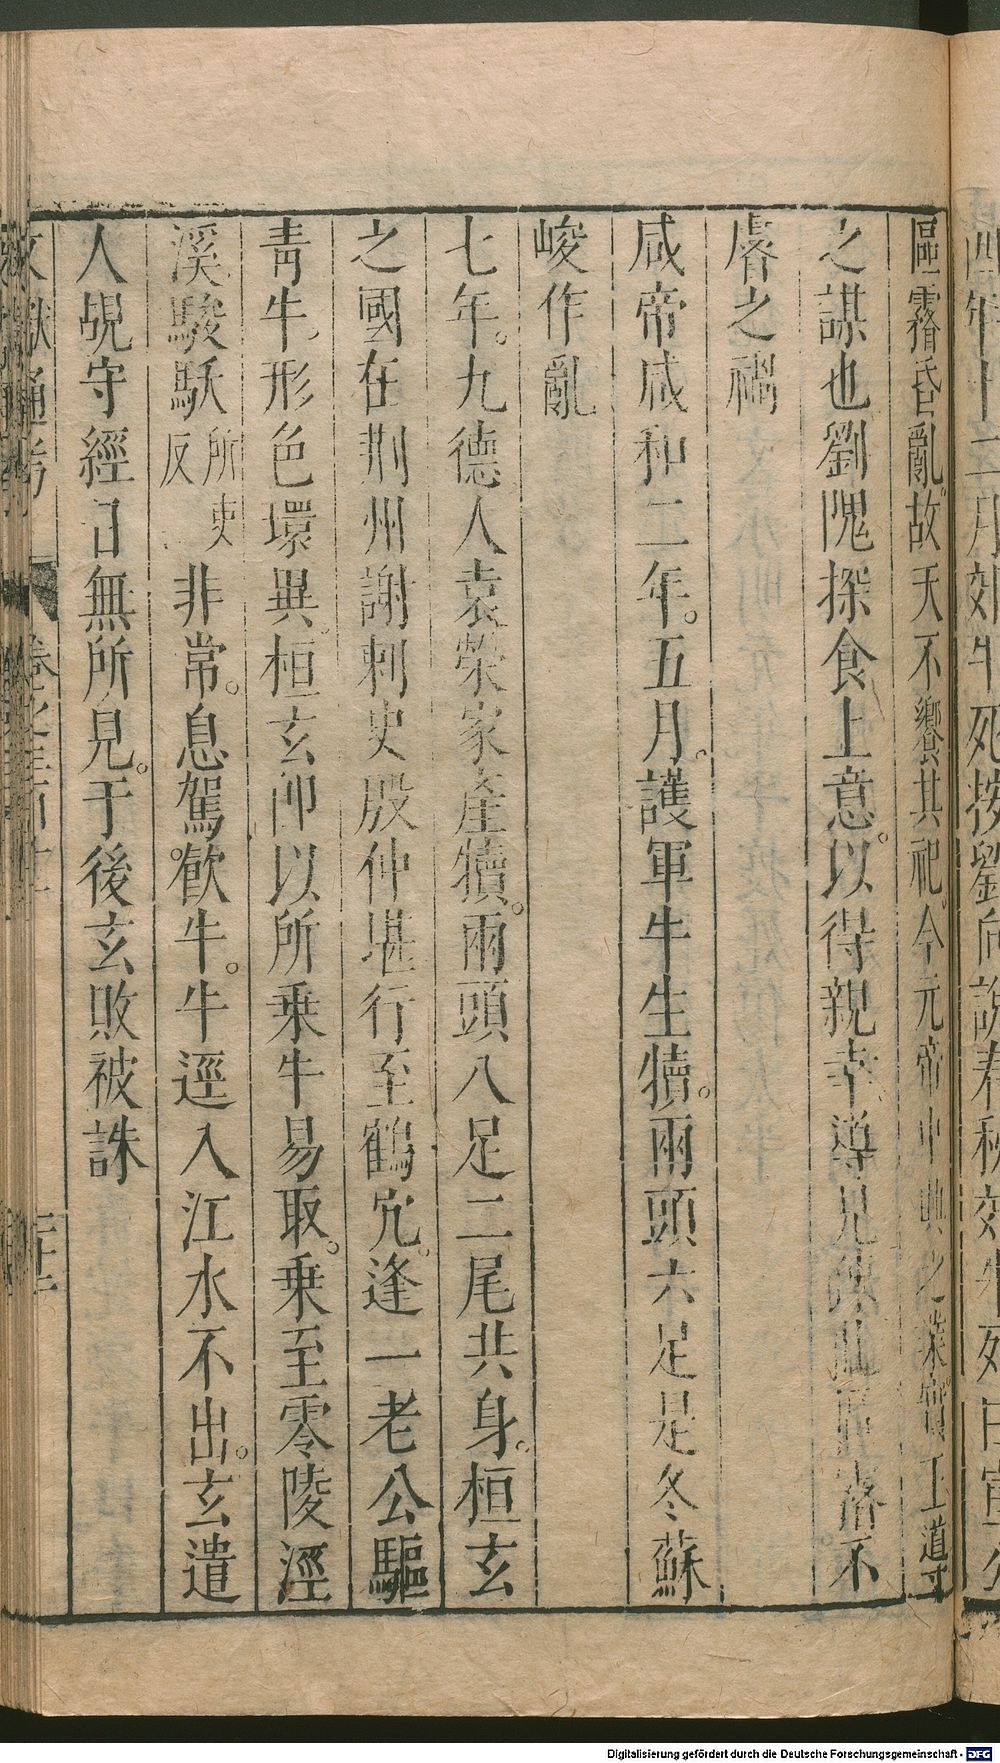 四年十二月郊牛死按劉向說春秋郊牛死曰宣公
區霿昏亂故天不饗其祀今元帝中興之業實王導
之謀也劉隗探食上意。以得親幸導見疎此區霿不
睿之禍
咸帝咸和二年。五月。護軍牛生犢。兩頭六足是冬蘇
峻作亂
七年。九德人袁榮家產犢。兩頭八足二尾共身。桓玄
之國在荆州謝刺史殷仲堪行至鶴穴。逢一老公驅
青牛。形色環異。桓玄卽以所乗牛易取。乗至零陵涇
溪駿駃所吏反非常。息駕。飲牛。牛逕入江水不出。玄遣
人覘守經日無所見。于後玄敗被誅
文獻通考
Digitalisierung gefördert durch die Deutsche Forschungsgemeinschaft - DFG